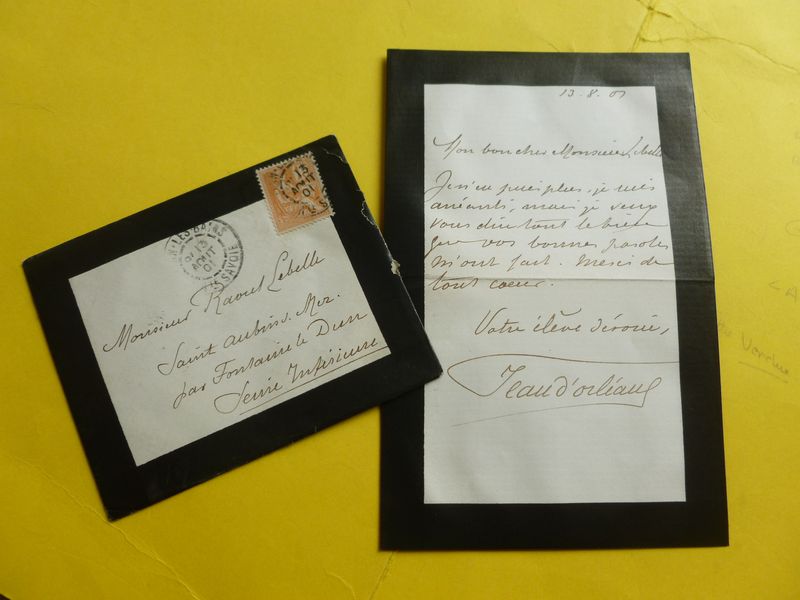 13
AOUT
01
LES BAINS
13
AOUT
01
SAVOIE
Monsieur Raoul Lebelle
Saint Aubin s. Mer.
par Fontaine le Dun
Seine Inférieure
13 - 8. 01
Mon bon cher Monsieur Lebelle
Je n'en puis plus, je suis
anéanti, mais je veux
vous dire tout le bien
que vos bonnes paroles
m'ont fait. Merci de
tout coeur.
Votre élève dévoué,
Jean d'orléans